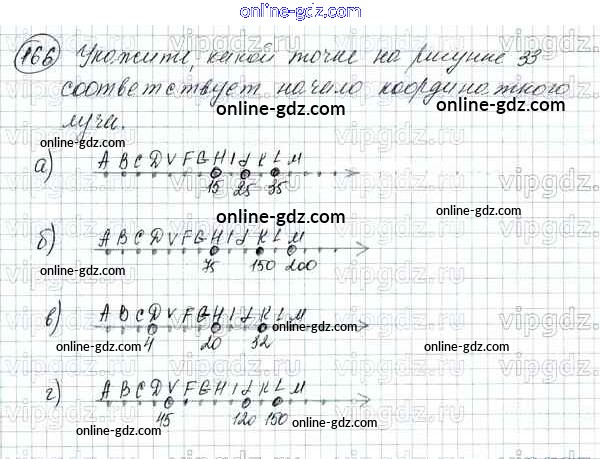 online-gdz.com
166 Укажите, какой точке на рисунке 33
соответствует начало координатного
луча.
online-gdz.com online-gdz.com
а) A B C D V F G H I J K L M
15 25 35
online-gdz.com
online-gdz.com
online-gdz.com
б) A B C D V F G H I J K L M
75 150 200
online-gdz.com
online-gdz.com
в) A B C D V F G H I J K L M
online-gdz.com online-gdz.com
4 20 32
online-gdz.com online-gdz.com
г) A B C D V F G H I J K L M
online-gdz.com
45 120 150
online-gdz.com
online-gdz.com